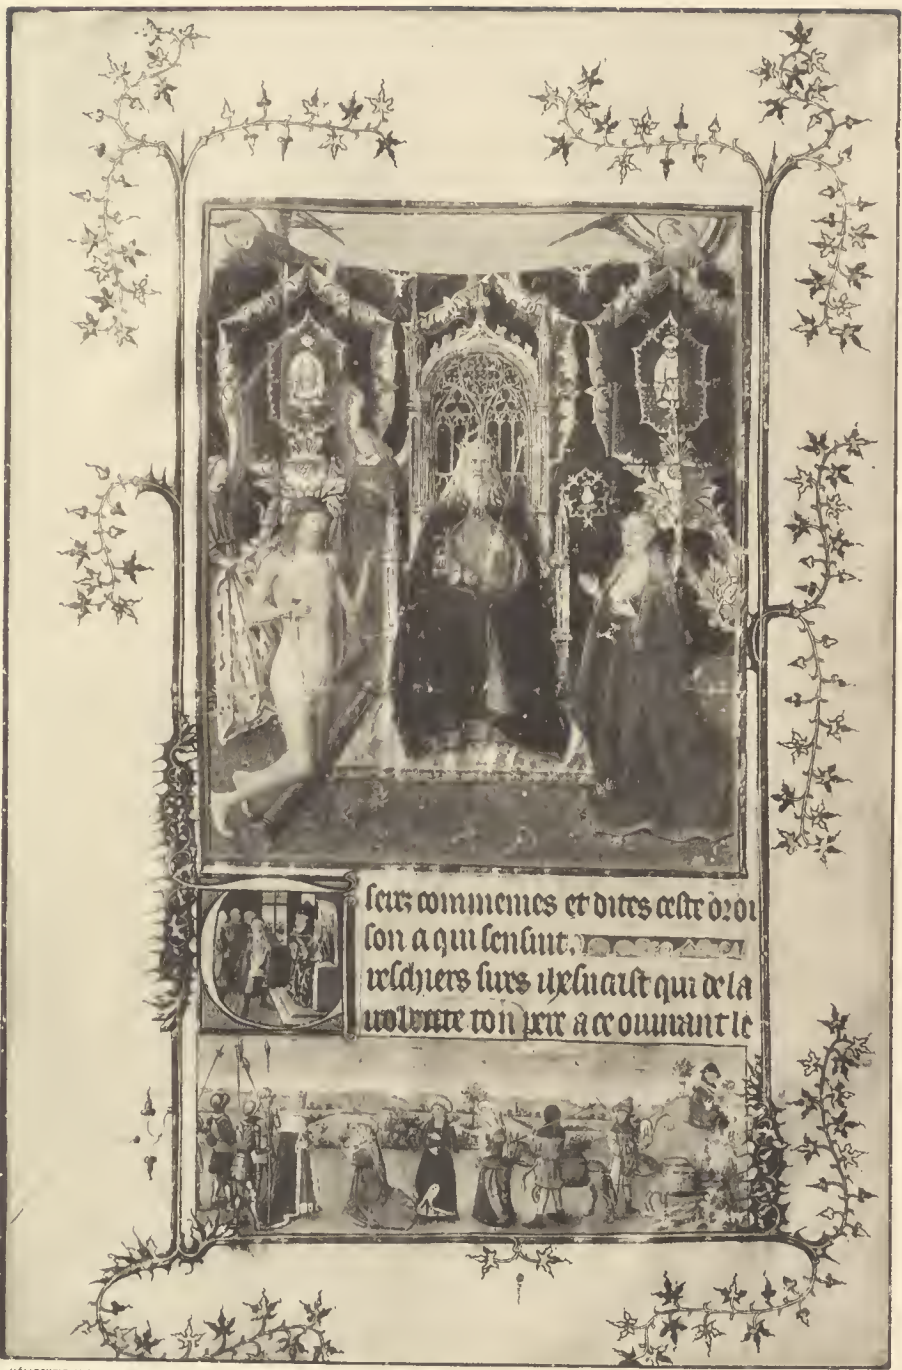 commenies et dites ceste oroi
son a qui sensuit.
Treschiers sires ihesucrist qui de la
uolente ton pere a ce ouurant le